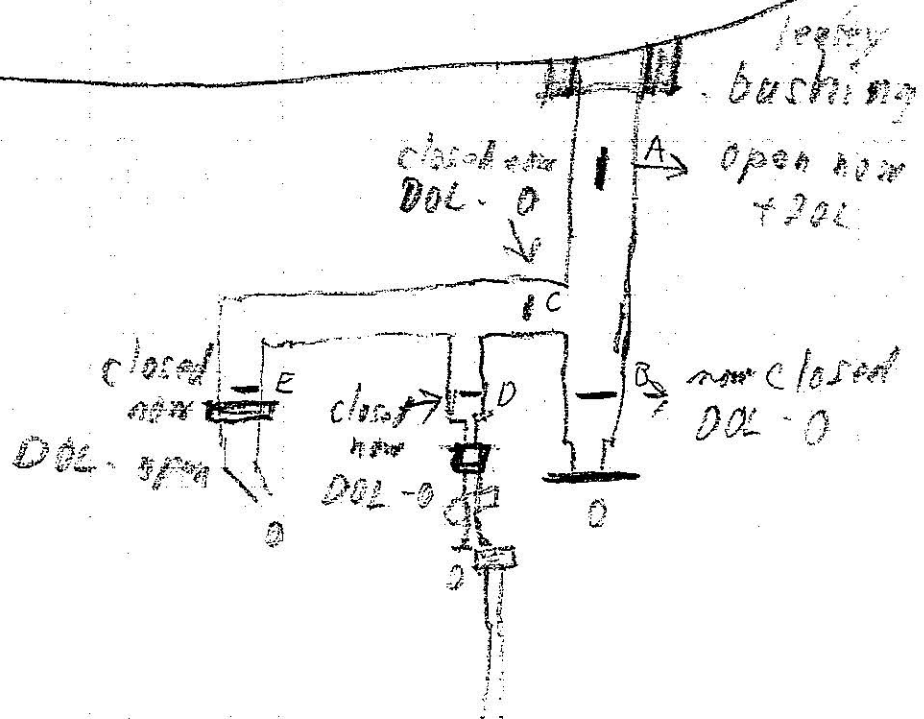 leaky
bushing
closed now
DOL - O
A
open now
+ DOL
C
closed
now
DOL - open
E
closed
now
DOL - O
D
B
now closed
DOL - O
O
O
O